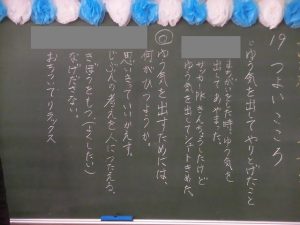 19 つよい こころ
○ゆう気を出してやりとげたこと
まちがいをした時、ゆう気を
出してあやまった。
サッカー PKきんちょうしたけど
ゆう気を出してシュートきめた。
ゆう気を出すためには、
何がひつようか。
思いきっていいかえす。
じぶんの考えを人につたえる。
きぼうをもつ(よくしたい)
なげださない。
おちついて リラックス